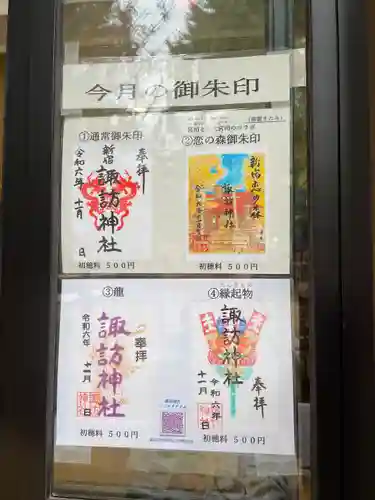 今月の御朱印
①通常御朱印
奉拝
新宿
諏訪神社
令和六年十一月 日
初穂料 500円
②恋の森御朱印
新宿恋の森
諏訪神社
初穂料 500円
③龍
奉拝
諏訪神社
令和六年十一月 日
初穂料 500円
④縁起物
奉拝
諏訪神社
令和六年十一月 日
初穂料 500円